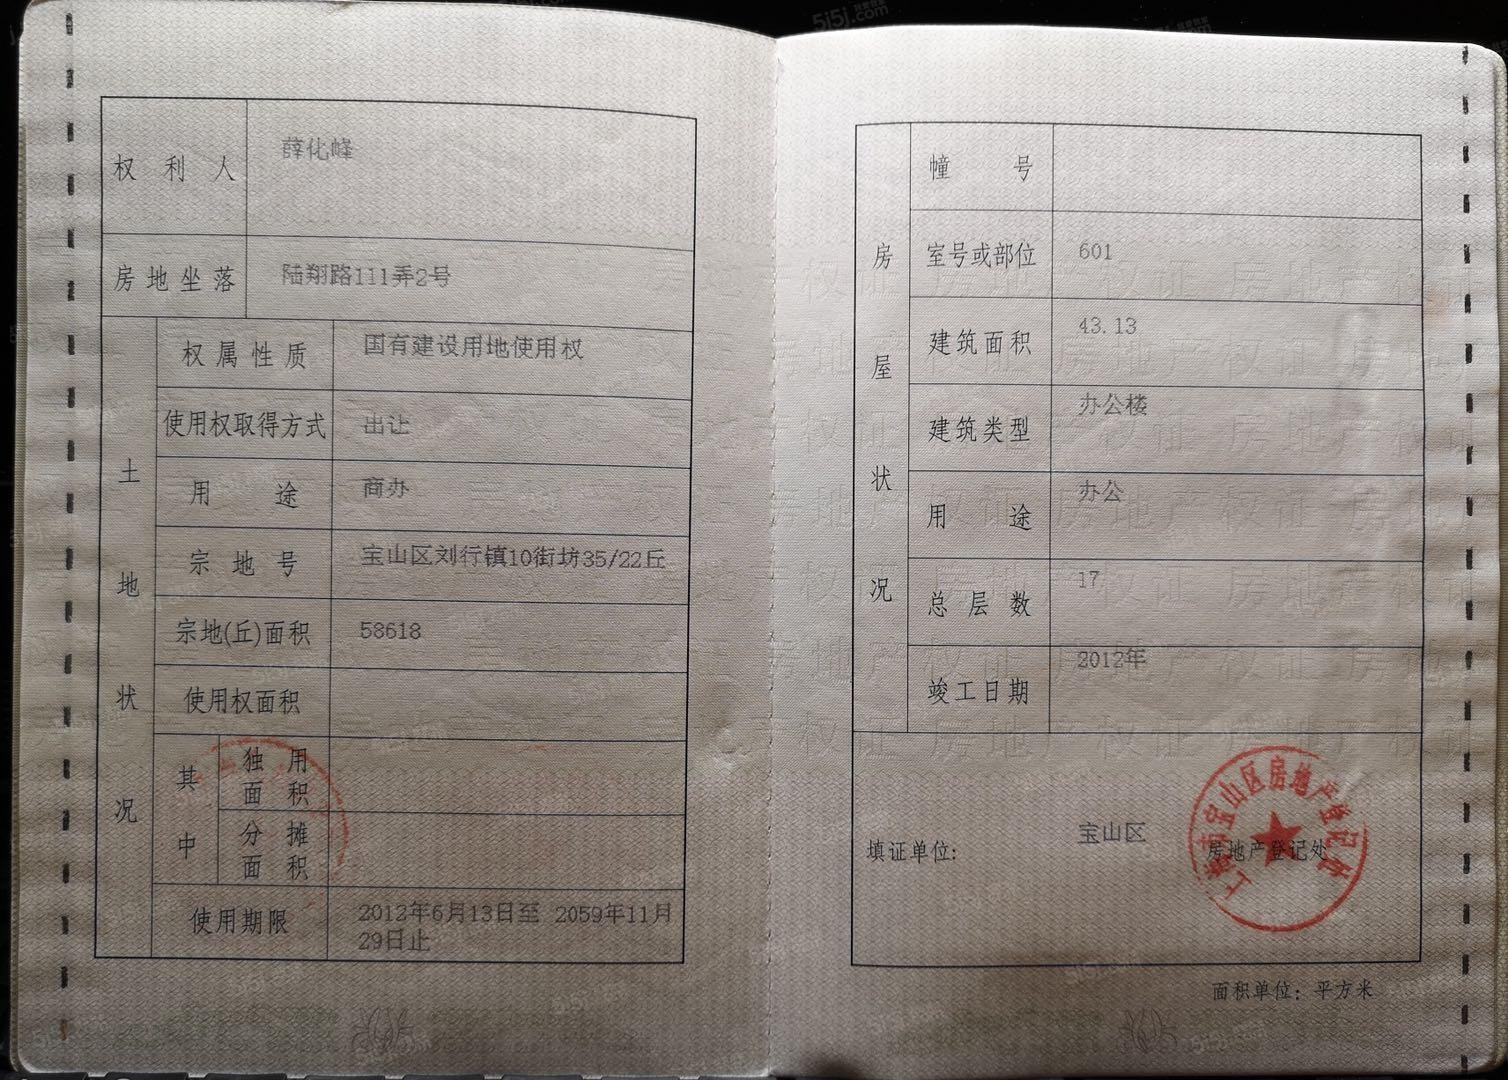 权利人 薛化峰
房地坐落 陆翔路111弄2号
土地状况
权属性质 国有建设用地使用权
使用权取得方式 出让
用途 商办
宗地号 宝山区刘行镇10街坊35/22丘
宗地(丘)面积 58618
使用权面积
其中
独用面积
分摊面积
使用期限 2012年6月13日至 2059年11月
29日止
房屋状况
幢号
室号或部位 601
建筑面积 43.13
建筑类型 办公楼
用途 办公
总层数 17
竣工日期 2012年
填证单位: 宝山区 房地产登记处
上海市宝山区房地产登记处
面积单位：平方米
房地产权证
5i5j.com